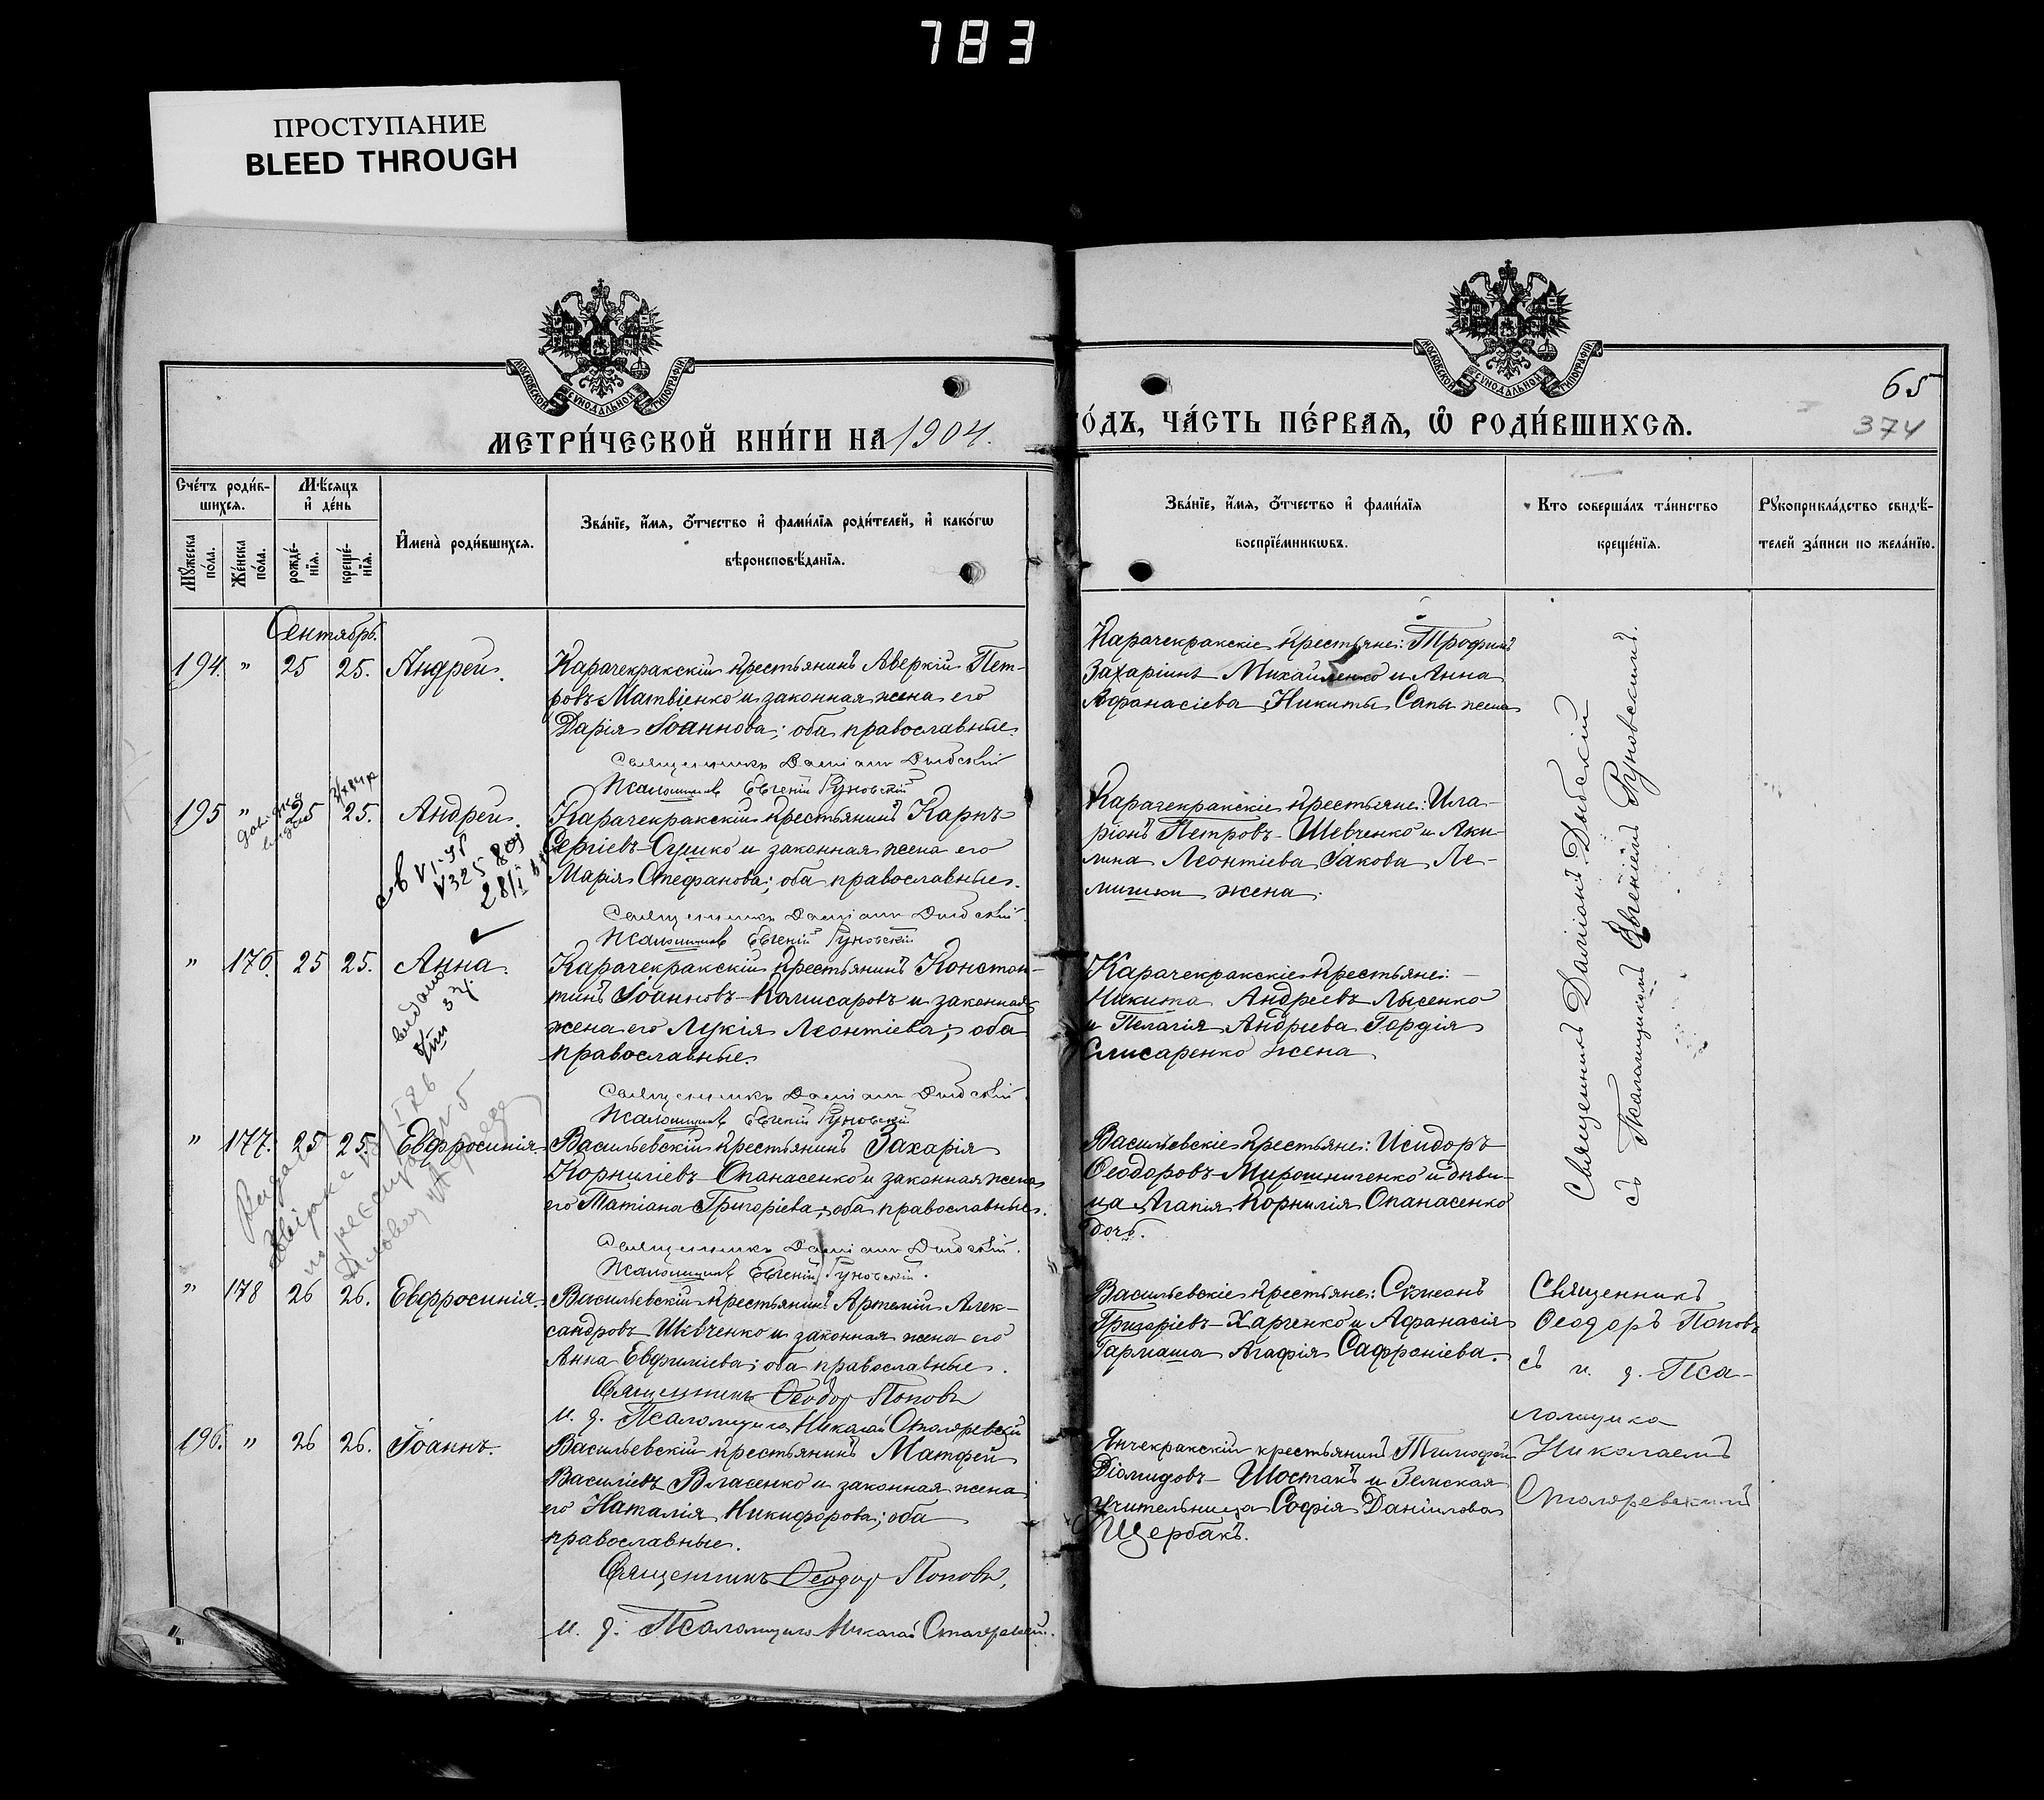 783
ПРОСТУПАНИЕ
BLEED THROUGH
МОСКОВСКОЙ СѴНОДАЛЬНОЙ ТИПОГРАФІИ
МОСКОВСКОЙ СѴНОДАЛЬНОЙ ТИПОГРАФІИ
65
МЕТРИ́ЧЕСКОЙ КНИ́ГИ НА 1904.
О́ДЪ, ЧА́СТЬ ПЕ́РВАѦ, Ѿ РОДИ́ВШИХСѦ.
374
Сче́тъ роди́в-
шихся.
Мѣ́сяцъ
и҆ де́нь
И҆мена̀ роди́вшихся.
Зва́нїе, и҆́мя, ѻ҆́тчество и҆ фами́лїя роди́телей, и҆ како́гѡ
вѣроисповѣ́данїя.
Му́жеска по́ла.
Же́нска по́ла.
рожде́-
нїя.
креще́-
нїя.
Зва́нїе, и҆́мя, ѻ҆́тчество и҆ фами́лїя
воспрїе́мникѡвъ.
Кто соверша́лъ та́инство
креще́нїя.
Рꙋкоприкла́дство свидѣ́-
телей за́писи по жела́нїю.
Сентябрь.
194. " 25 25. Андрей.
Карачекракскій крестьянинъ Аверкій Пет-
ровъ Матвіенко и законная жена его
Дарія Іоаннова; оба православные.
Священникъ Даміанъ Дыбскій
Псаломщикъ Евгеній Руновскій
Карачекракскіе крестьяне: Трофимъ
Захаріинъ Михайленко и Анна
Афанасіева Никиты Сапы жена
195 " 25 25. Андрей.
Карачекракскій крестьянинъ Карпъ
Сергіевъ Сушко и законная жена его
Марія Стефанова; оба православные.
Священникъ Даміанъ Дыбскій.
Псаломщикъ Евгеній Руновскій
Карачекракскіе крестьяне: Ила-
ріонъ Петровъ Шевченко и Аки-
лина Леонтіева Іакова Ле-
мишки жена.
" 176. 25 25. Анна.
Карачекракскій крестьянинъ Констан-
тинъ Іоанновъ Камисаровъ и законная
жена его Лукія Леонтіева; оба
православные.
Священникъ Даміанъ Дыбскій.
Псаломщикъ Евгеній Руновскій
Карачекракскіе крестьяне:
Никита Андреевъ Лысенко
и Пелагія Андреева Гордія
Слисаренко жена
" 177. 25 25. Евфросинія
Васильевскій крестьянинъ Захарія
Корниліевъ Опанасенко и законная жена
его Татіана Григоріева; оба православные.
Священникъ Даміанъ Дыбскій.
Псаломщикъ Евгеній Руновскій.
Васильевскіе крестьяне: Исидоръ
Ѳеодоровъ Мирошниченко и дѣви-
ца Агапія Корнилія Опанасенко
дочь.
Священникъ Даміанъ Дыбскій
съ Псаломщикомъ Евгеніемъ Руновскимъ.
" 178 26 26. Евфросинія.
Васильевскій крестьянинъ Артемій Алек-
сандровъ Шевченко и законная жена его
Анна Евфиміева; оба православные.
Священникъ Ѳеодоръ Поповъ
И. д. Псаломщика Николай Столяревскій
Васильевскіе крестьяне: Сѵмеонъ
Григоріевъ Харченко и Афанасія
Гармаша Агафія Сафроніева.
Священникъ
Ѳеодоръ Поповъ
съ и. д. Пса-
ломщика
Николаемъ
Столяревскимъ
196. " 26 26. Іоаннъ.
Васильевскій крестьянинъ Матфей
Василіевъ Власенко и законная жена
его Наталія Никифорова; оба
православные.
Священникъ Ѳеодоръ Поповъ,
И. д. Псаломщика Николай Столяревскій.
Янчекракскій крестьянинъ Тимофей
Діомидовъ Шостакъ и Земская
учительница Софія Даніилова
Щербакъ.